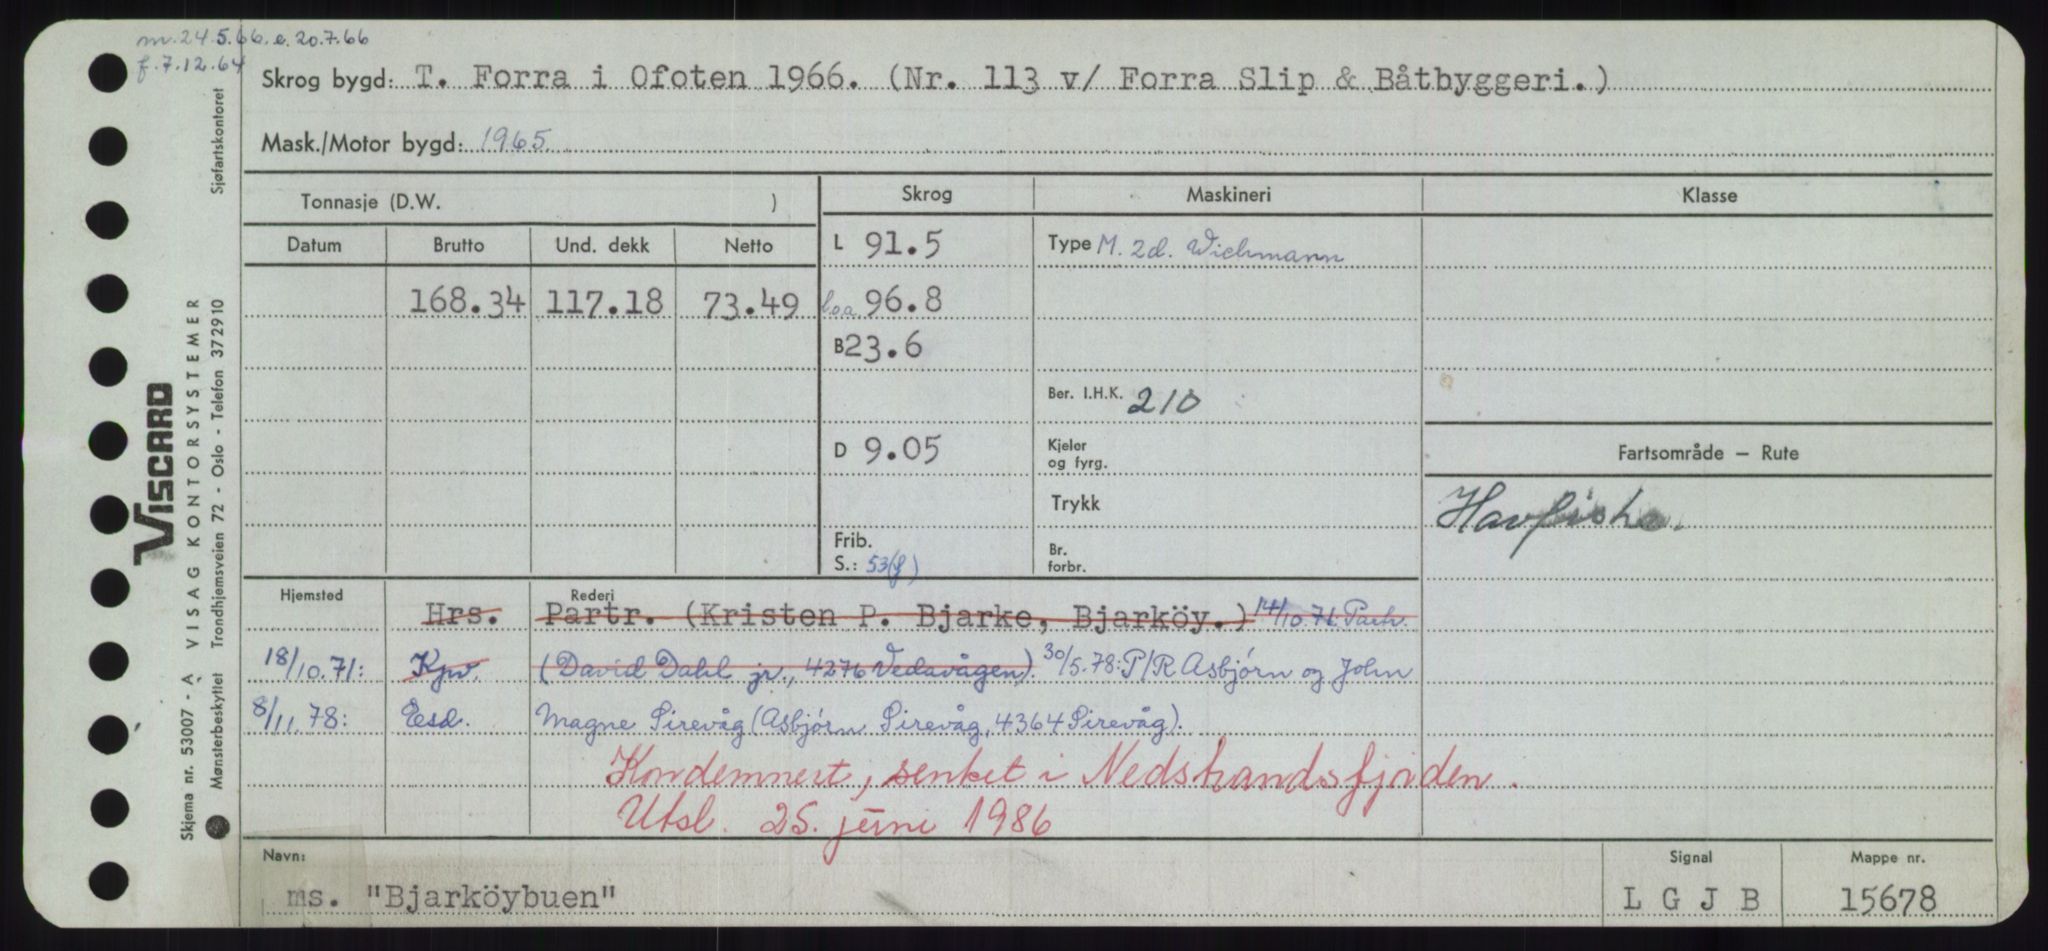 m. 24.5.66. e. 20.7.66
f. 7.12.64
Skrog bygd: T. Forra i Ofoten 1966. (Nr. 113 v/ Forra Slip & Båtbyggeri.)
Mask./Motor bygd: 1965.
Tonnasje (D.W. ) Skrog Maskineri Klasse
Datum Brutto Und. dekk Netto L 91.5 Type M. 2d. Wichmann
168.34 117.18 73.49 l.o.a. 96.8
B 23.6
Ber. I.H.K. 210
D 9.05 Kjeler og fyrg. Fartsområde – Rute
Trykk Havfiske.
Frib. Br. forbr.
S.: 53(f)
Hjemsted Rederi
Hrs. Partr. (Kristen P. Bjarke, Bjarköy.) 14/10.71: Partr.
18/10.71: Kpv. (David Dahl jr., 4276 Vedavågen). 30/5.78: P/R Asbjørn og John
8/11.78: Eesd. Magne Sirevåg (Asbjørn Sirevåg, 4364 Sirevåg).
Kondemnert, senket i Nedstrandsfjorden.
Utsl. 25. juni 1986
Navn: Signal Mappe nr.
ms. "Bjarköybuen" L G J B 15678
VISCARD
Skjema nr. 53007 - A VISAG KONTORSYSTEMER Sjøfartskontoret
Mønsterbeskyttet Trondhjemsveien 72 - Oslo - Telefon 372910